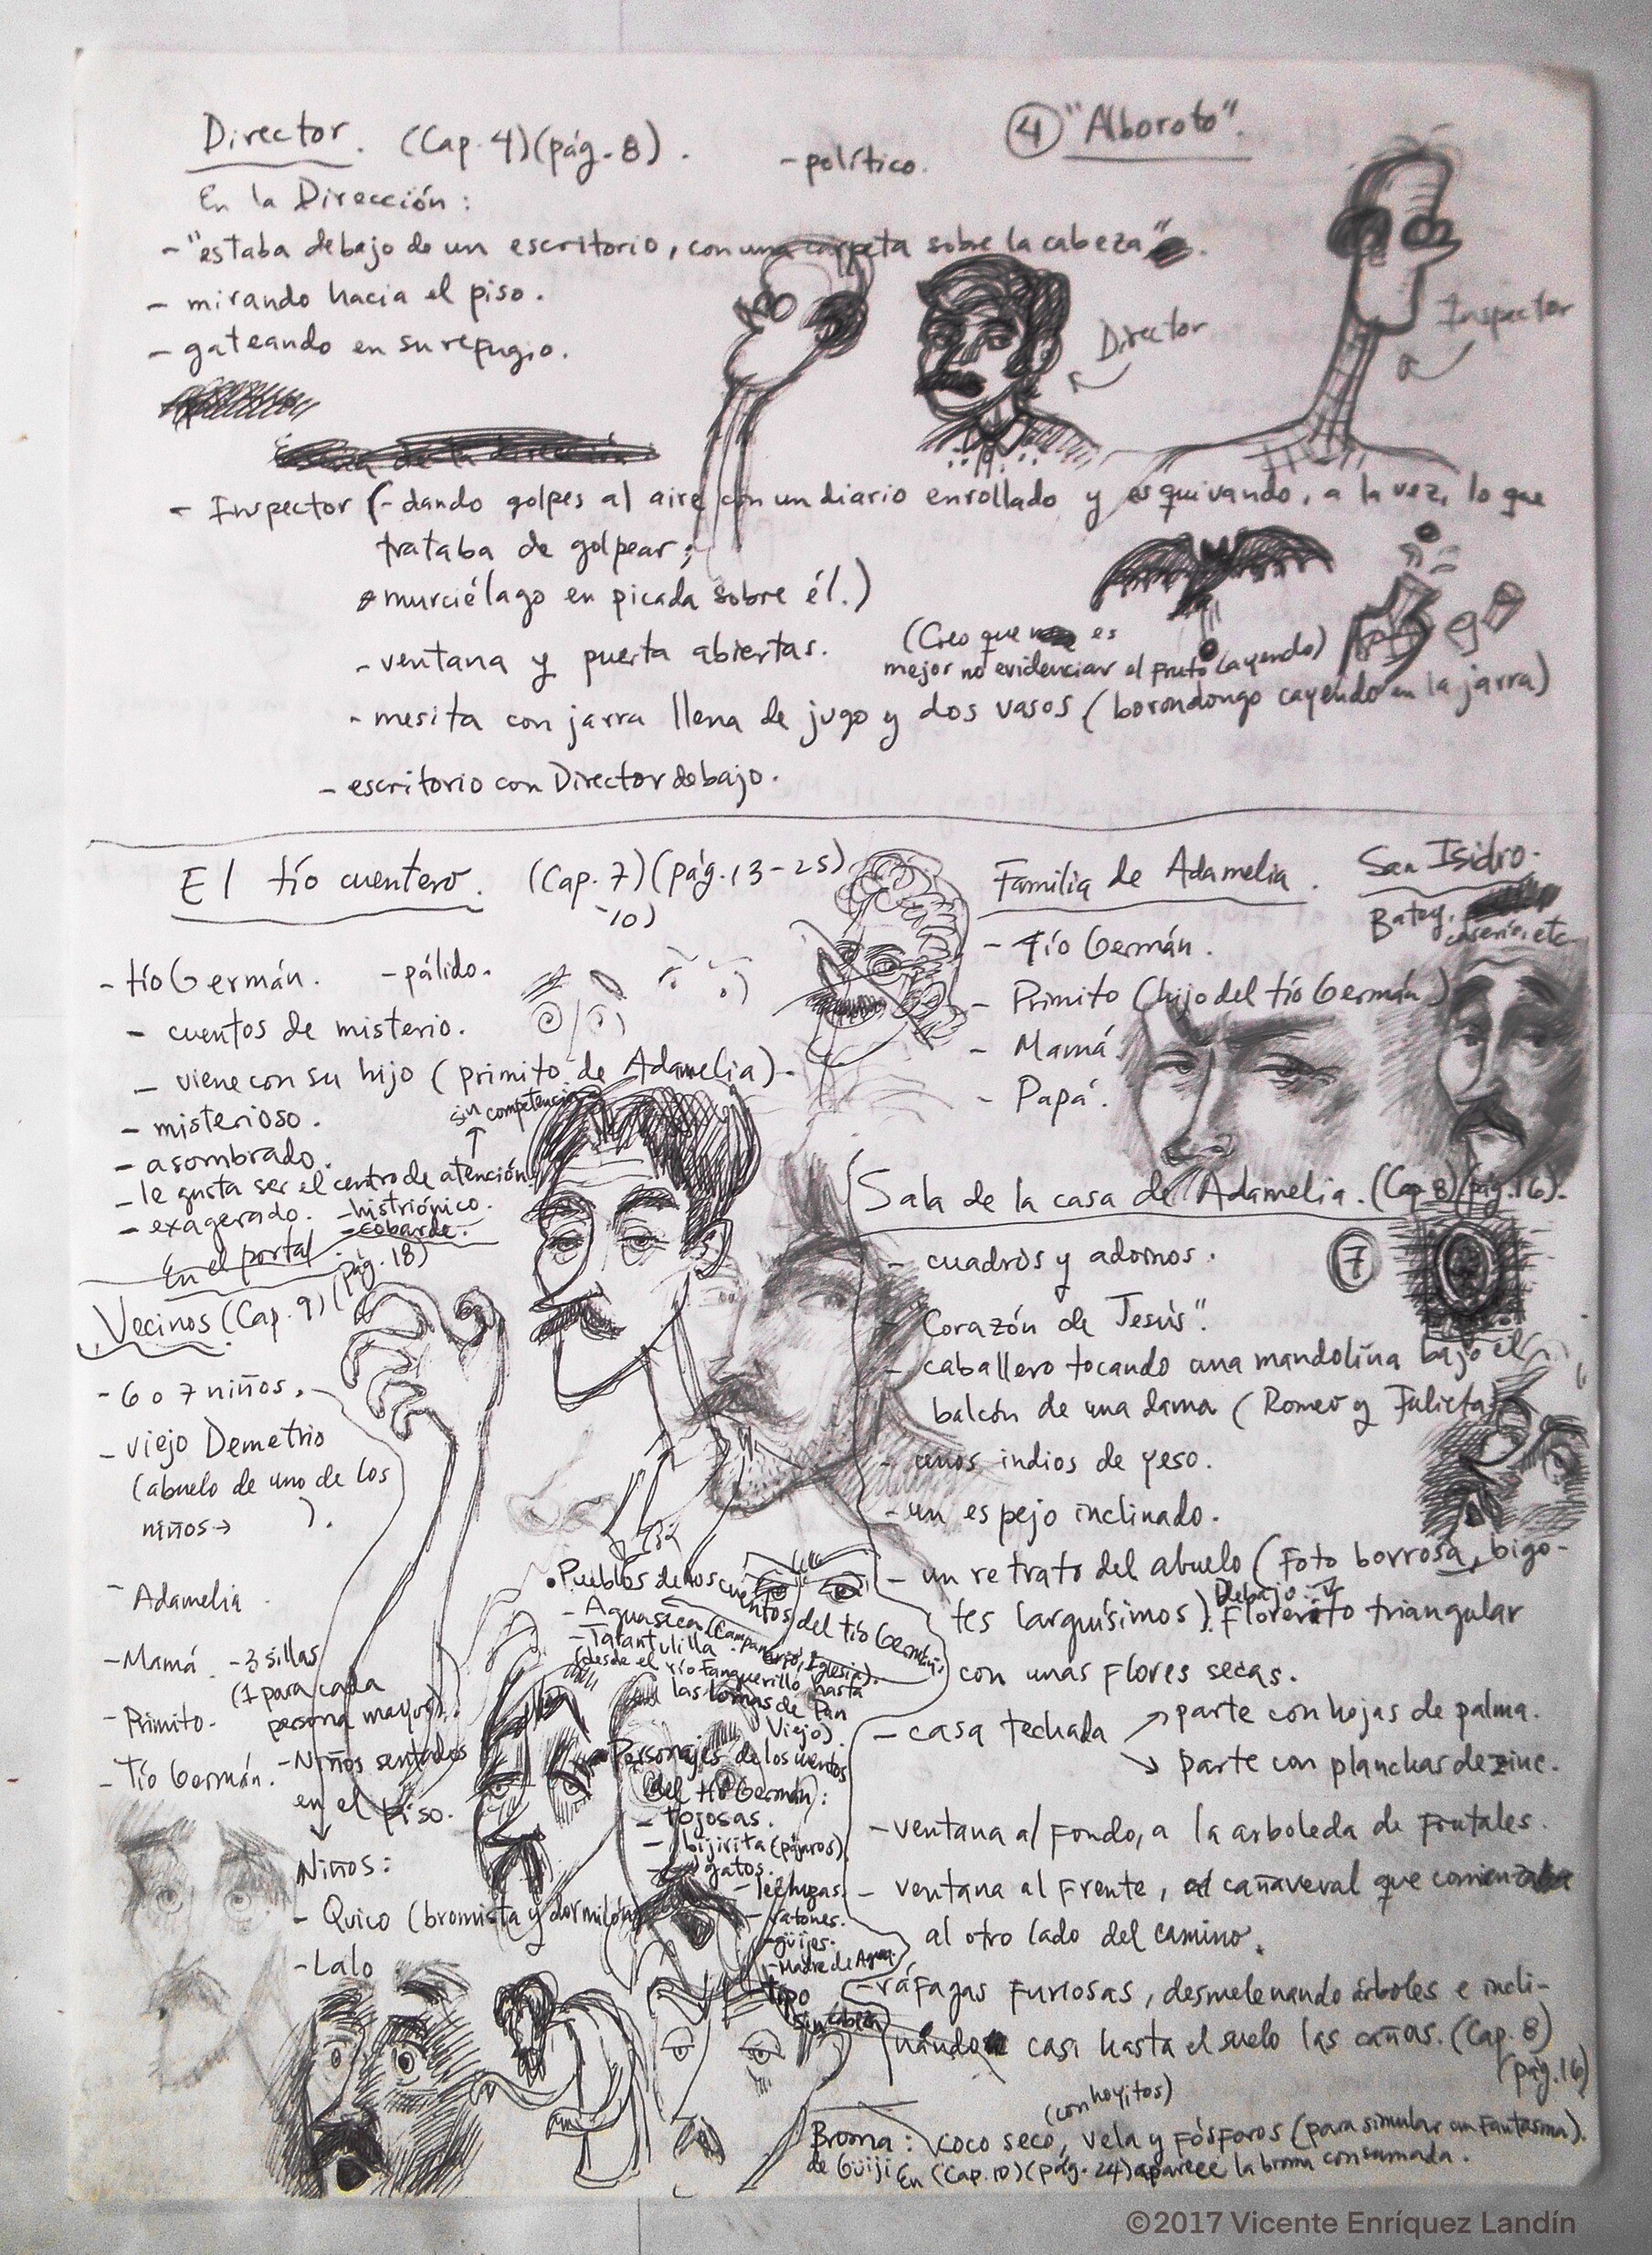 Director. (Cap. 4)(pág. 8).
- político.
④ "Alboroto".
En la Dirección:
- "estaba debajo de un escritorio, con una carpeta sobre la cabeza".
- mirando hacia el piso.
- gateando en su refugio.
Director
Inspector
- Inspector (- dando golpes al aire con un diario enrollado y esquivando, a la vez, lo que
trataba de golpear;
murciélago en picada sobre él.)
- ventana y puerta abiertas.
(Creo que es
mejor no evidenciar el fruto cayendo)
- mesita con jarra llena de jugo y dos vasos (borondongo cayendo en la jarra)
- escritorio con Director debajo.
El tío cuentero. (Cap. 7)(pág. 13-25)
-10)
- tío Germán. - pálido.
- cuentos de misterio.
- viene con su hijo (primito de Adamelia).
- misterioso.
sin competencia
- asombrado.
- le gusta ser el centro de atención
- exagerado. - histriónico.
- cobarde.
En el portal.
(pág. 18)
Vecinos (Cap. 9)
- 6 o 7 niños.
- viejo Demetrio
(abuelo de uno de los
niños → ).
- Adamelia
- Mamá. - 3 sillas
(1 para cada
persona mayor).
- Primito.
- Tío Germán. - Niños sentados
en el piso.
Niños:
- Quico (bromista y dormilón)
- Lalo
• Pueblos de los cuentos del tío Germán:
- Aguaseca (Campanario, Iglesia).
- Tarantulilla
(desde el río Fanguerillo hasta
las lomas de Pan
Viejo).
Personajes de los cuentos
del tío Germán:
- tojosas.
- bijirita (pájaros)
- gatos.
- lechuzas.
- ratones.
- güijes.
- Madre de Agua.
- tipo
sin cabeza
Familia de Adamelia.
- Tío Germán.
- Primito (hijo del tío Germán)
- Mamá.
- Papá.
San Isidro.
Batey,
caserío, etc.
Sala de la casa de Adamelia. (Cap. 8)(pág. 16).
- cuadros y adornos.
⑦
- "Corazón de Jesús".
- caballero tocando una mandolina bajo el
balcón de una dama (Romeo y Julieta)
- unos indios de yeso.
- un espejo inclinado.
- un retrato del abuelo (foto borrosa, bigo-
tes larguísimos). Debajo: Florerito triangular
con unas flores secas.
- casa techada ↗ parte con hojas de palma.
↘ parte con planchas de zinc.
- ventana al fondo, a la arboleda de frutales.
- ventana al frente, al cañaveral que comenzaba
al otro lado del camino.
- ráfagas furiosas, desmelenando árboles e incli-
nando casi hasta el suelo las cañas. (Cap. 8)
(pág. 16)
(con hoyitos)
Broma: coco seco, vela y fósforos (para simular un fantasma).
de Güije En (Cap. 10)(pág. 24) aparece la broma consumada.
©2017 Vicente Enríquez Landín